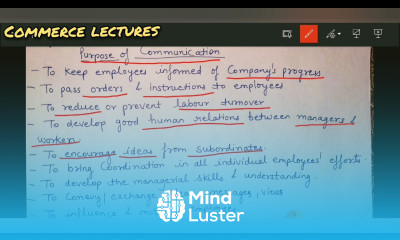 COMMERCE LECTURES
Purpose of Communication
- To keep employees informed of Company's progress
- To pass orders & instructions to employees
- To reduce or prevent labour turnover
- To develop good human relations between managers &
workers
- To encourage ideas from subordinates.
- To bring coordination in all individual employees' efforts.
- To develop the managerial skills & understanding.
- To Convey/exchange messages, views
- To influence &
Mind
Luster